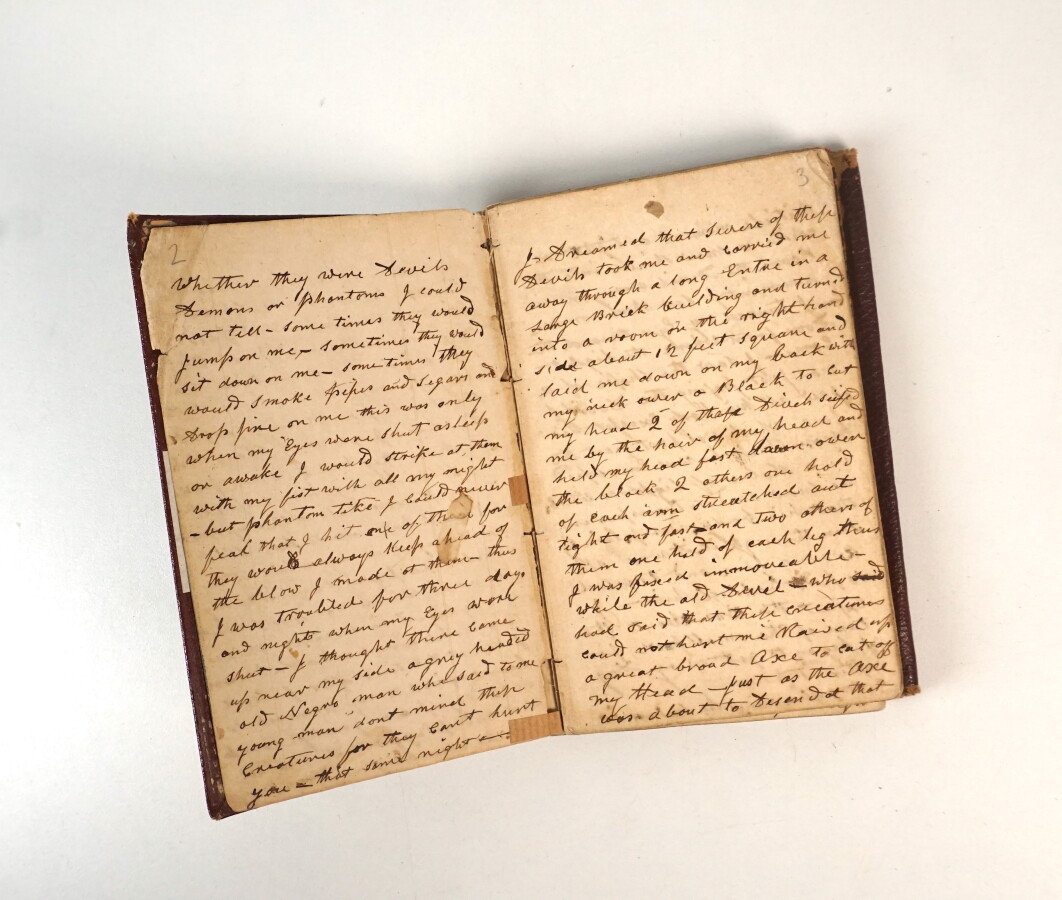 2
Whether they were Devils
Demons or phantoms I could
not tell - some times they would
Jump on me - sometimes they would
sit down on me - some times they
would smoke pipes and Segars and
Drop fire on me this was only
when my Eyes were shut asleep
or awake I would strike at them
with my fist with all my might
- but phantom like I could never
feal that I hit one of them for
they would always keep ahead of
the blow I made at them - thus
I was troubled for three days
and nights when my Eyes were
shut - I thought there came
up near my side a grey headed
old Negro man who said to me
young man dont mind these
Creatures for they cant hurt
you - that same night
3
I Dreamed that seven of these
Devils took me and carried me
away through a long Entre in a
Large Brick building and turned
into a room on the right hand
side about 12 feet square and
laid me down on my back with
my neck over a Black to cut
my head 2 of these Divels seised
me by the hair of my head and
held my head fast down over
the block 2 others one hold
of each arm streatched out
tight and fast and two others of
them one held of each leg thus
I was fixed immoveable -
while the old Devil - who said
had said that these creatures
could not hurt me Raised up
a great broad Axe to cut of
my Head - Just as the Axe
was about to Desend at that